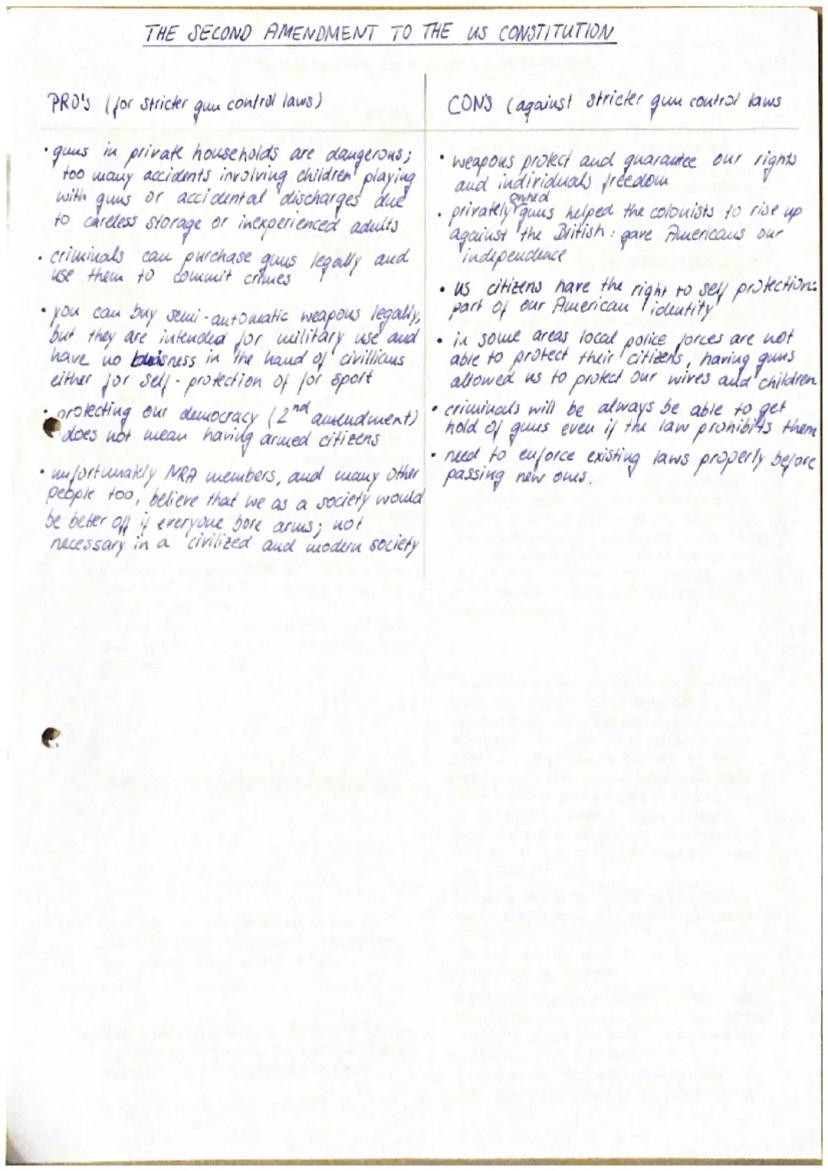 THE SECOND AMENDMENT TO THE US CONSTITUTION
PRO's (for stricter gun control laws)
• guns in private households are dangerous;
too many accidents involving children playing
with guns or accidental discharges due
to careless storage or inexperienced adults
• criminals can purchase guns legally and
use them to commit crimes
• you can buy semi-automatic weapons legally,
but they are intended for military use and
have no buisness in the hand of civillians
either for self-protection of for sport
• protecting our democracy (2nd amendment)
does not mean having armed citizens
• unfortunately NRA members, and many other
people too, believe that we as a society would
be beter off if everyone bore arms; not
necessary in a civilized and modern society
CON's (against stricter gun control laws
• weapons protect and guarantee our rights
and individuals freedom
• privately owned guns helped the colonists to rise up
against the British: gave Americans our
independence
• US citizens have the right to self protection:
part of our American identity
• in some areas local police forces are not
able to protect their citizens, having guns
allowed us to protect our wives and children
• criminals will be always be able to get
hold of guns even if the law prohibits them
• need to enforce existing laws properly before
passing new ones.